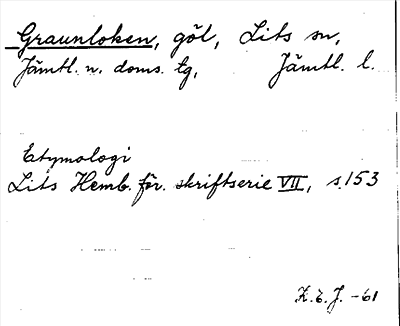 Graunloken, göl, Lits sn,
Jämtl. n. doms. tg, Jämtl. l.
Etymologi
Lits Hemb. för. skriftserie VII, s. 153
K. E. J. -61